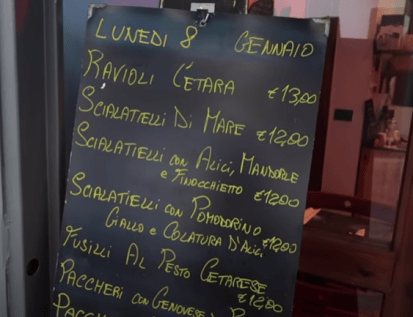 LUNEDI 8 GENNAIO
RAVIOLI CETARA €13,00
SCIALATIELLI DI MARE €12,00
SCIALATIELLI CON ALICI, MANDORLE
E FINOCCHIETTO €12,00
SCIALATIELLI CON POMODORINO
GIALLO E COLATURA D'ALICI €12,00
FUSILLI AL PESTO CETARESE
€12,00
PACCHERI CON GENOVESE